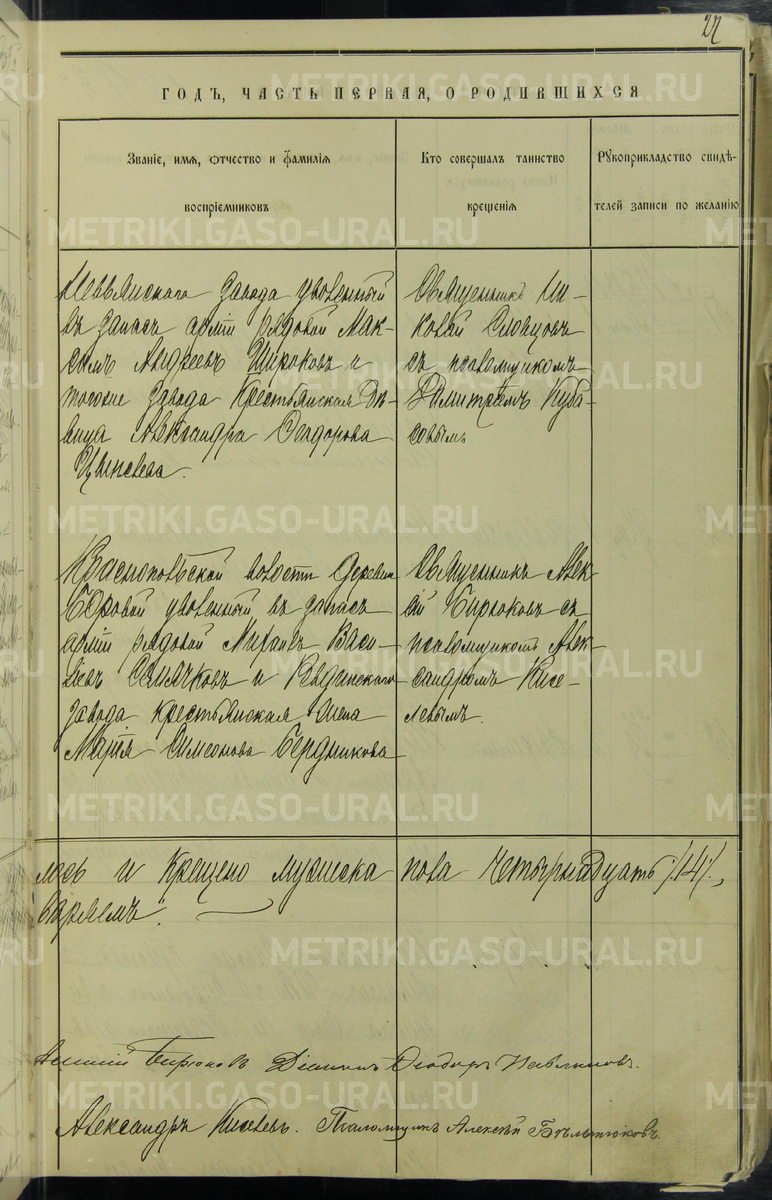 27
ГОДЪ, ЧАСТЬ ПЕРВАЯ, О РОДИВШИХСЯ
Званіе, имя, отчество и фамилія
воспріемниковъ
Кто совершалъ таинство
крещенія
Рукоприкладство свидѣ-
телей записи по желанію
Невьянскаго завода уволенный
въ запасъ арміи рядовой Мак-
симъ Андреевъ Широковъ и
тогоже завода крестьянская дѣ-
вица Александра Ѳеодорова
Священникъ Ни-
колай Словцовъ
съ псаломщикомъ
Димитріемъ Куба-
совымъ
Краснопольской волости деревни
Боровой уволенный въ запасъ
арміи рядовой Михаилъ Васи-
льевъ и Невьянскаго
завода крестьянская жена
Марія Симеонова Бердникова
Священникъ Алек-
сій Бирюковъ съ
псаломщикомъ Алек-
сандромъ Кисе-
левымъ.
лось и крещено мужеска пола четырнадцать /14/,
Алексій Бирюковъ Діаконъ Ѳеодоръ
Александръ Киселевъ. Псаломщикъ Алексѣй Бѣльтюковъ.
METRIKI.GASO-URAL.RU